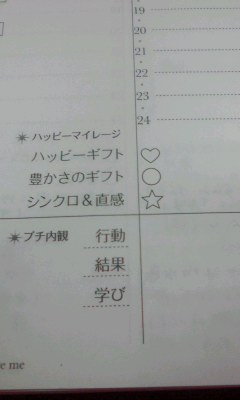 19
20
21
22
23
24
✷ハッピーマイレージ
ハッピーギフト ♡
豊かさのギフト ○
シンクロ&直感 ☆
✷プチ内観 行動
結果
学び
e me